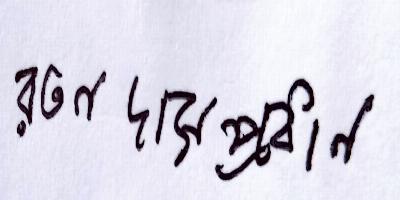 রতন দাস প্রবীন